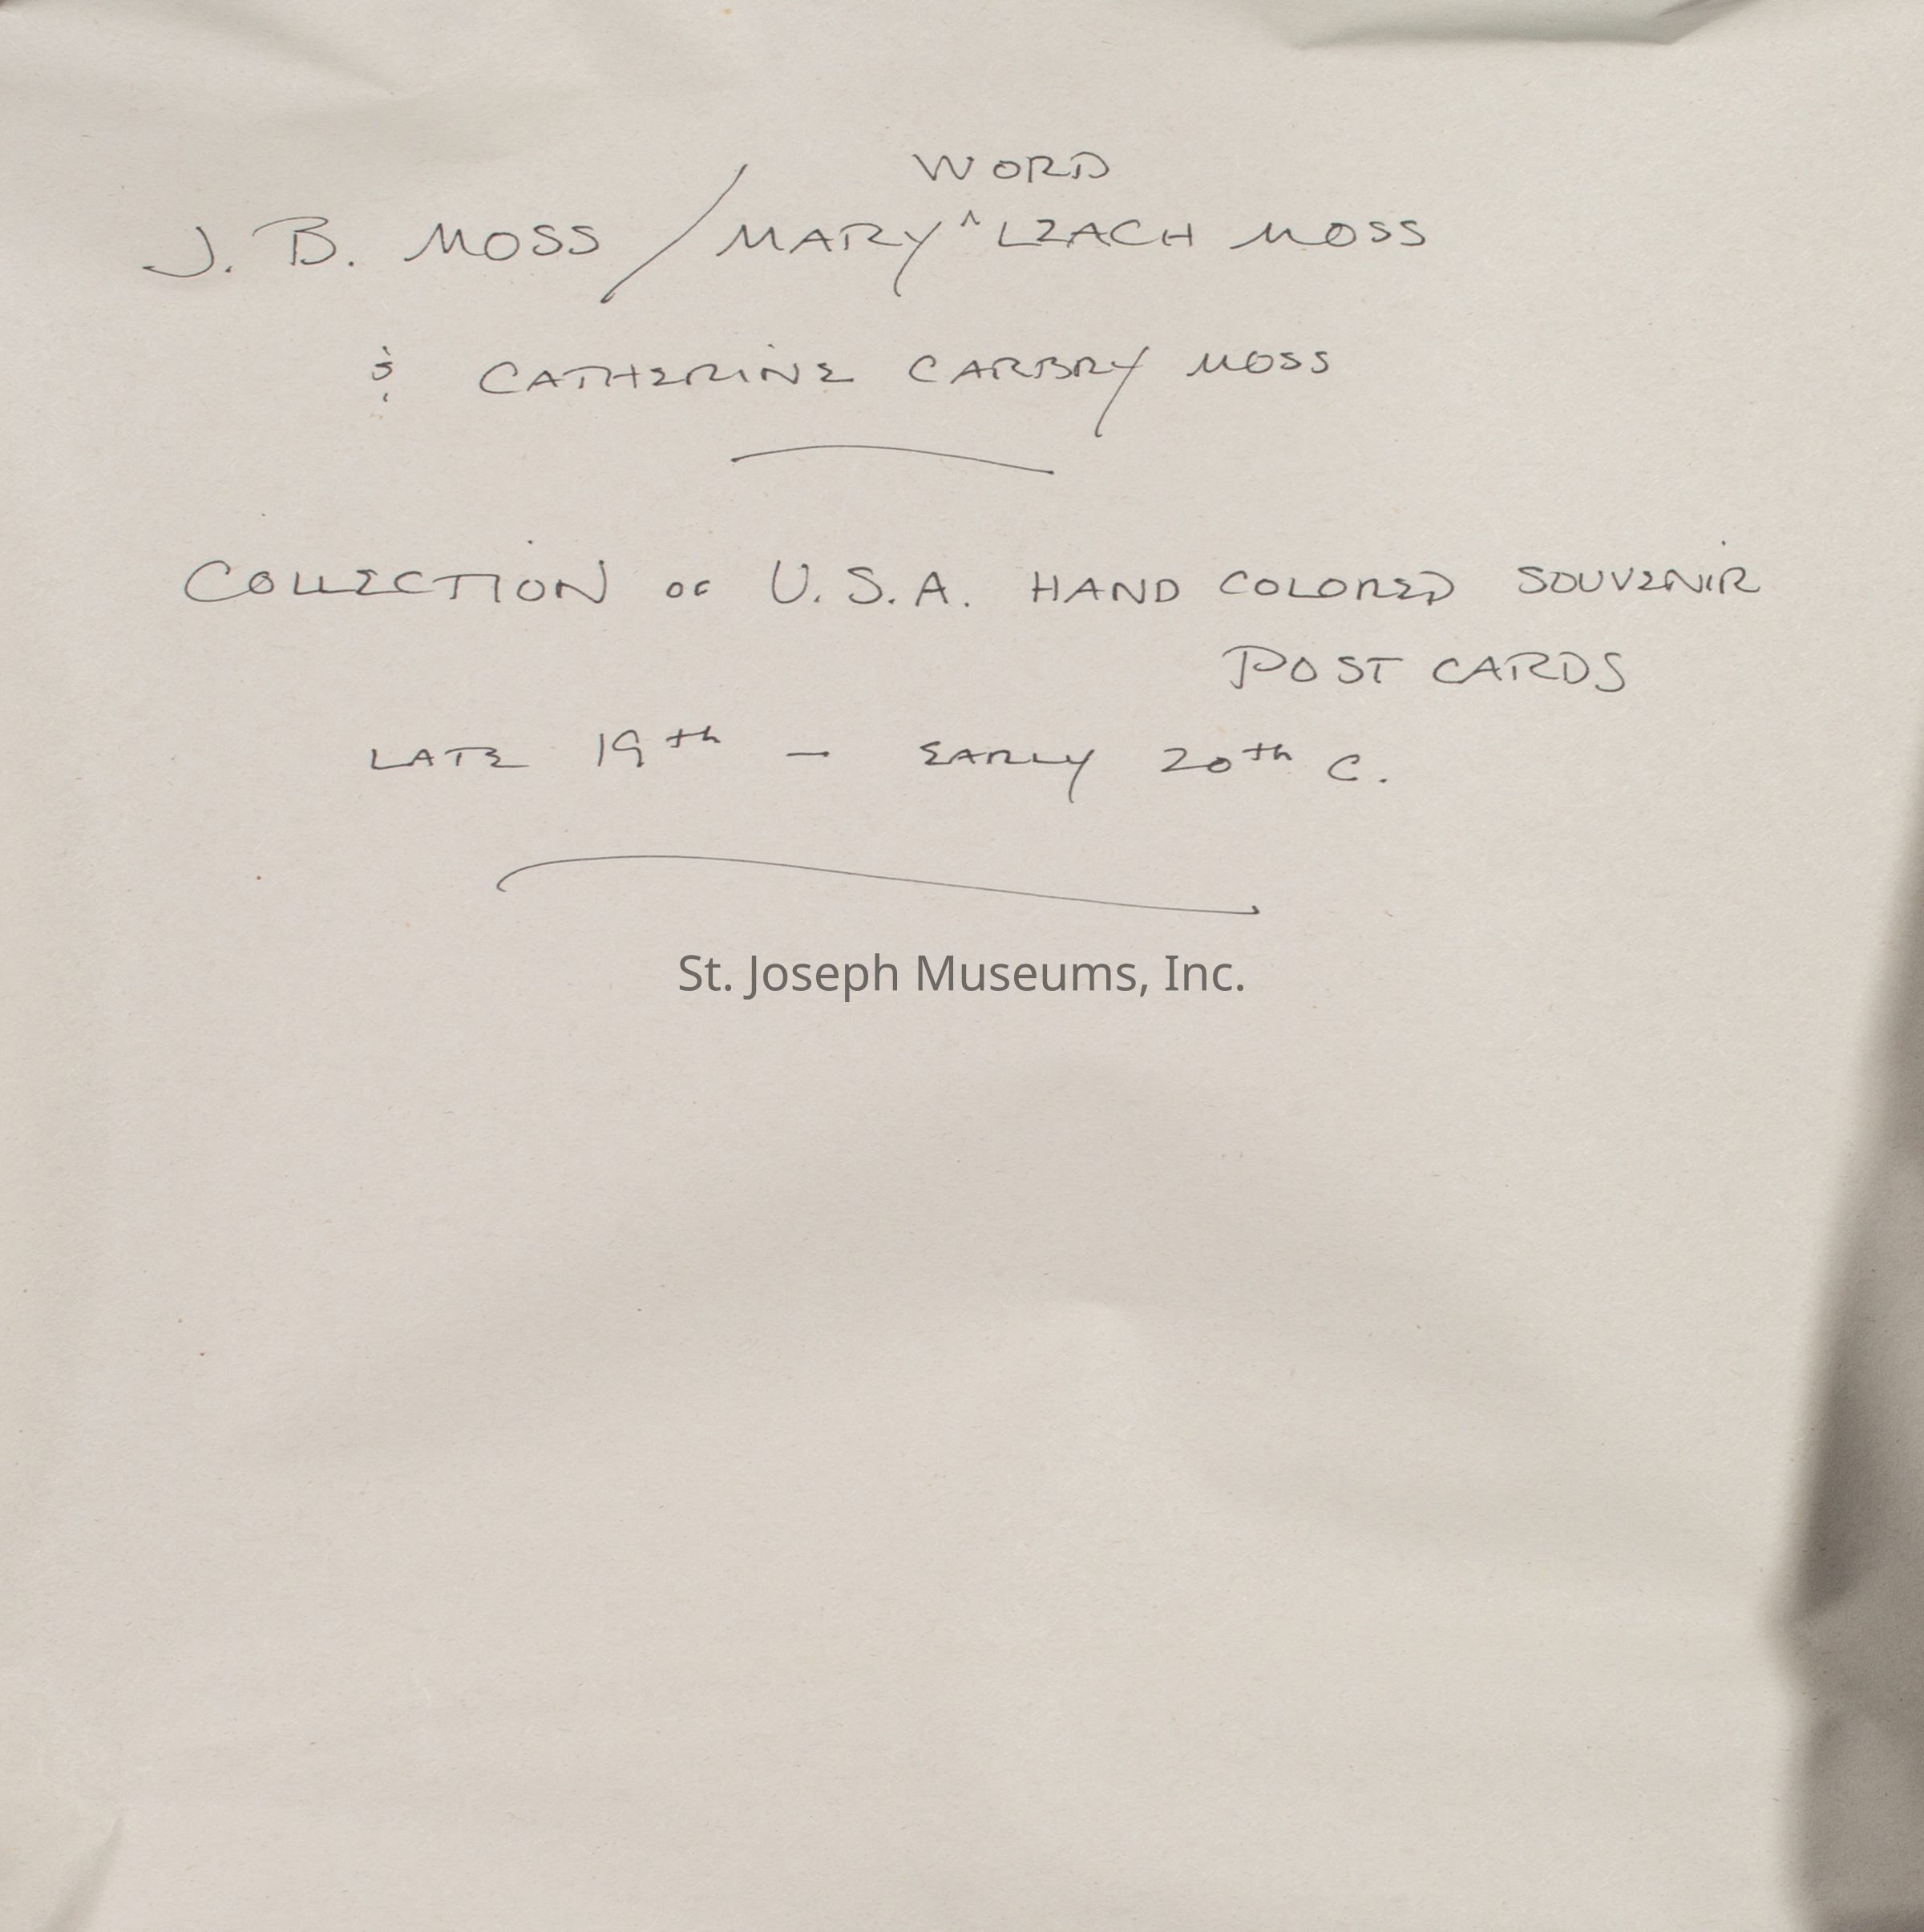 WORD
J. B. MOSS / MARY ^ LEACH MOSS
& CATHERINE CARBRY MOSS
COLLECTION OF U.S.A. HAND COLORED SOUVENIR
POST CARDS
LATE 19th - EARLY 20th C.
St. Joseph Museums, Inc.